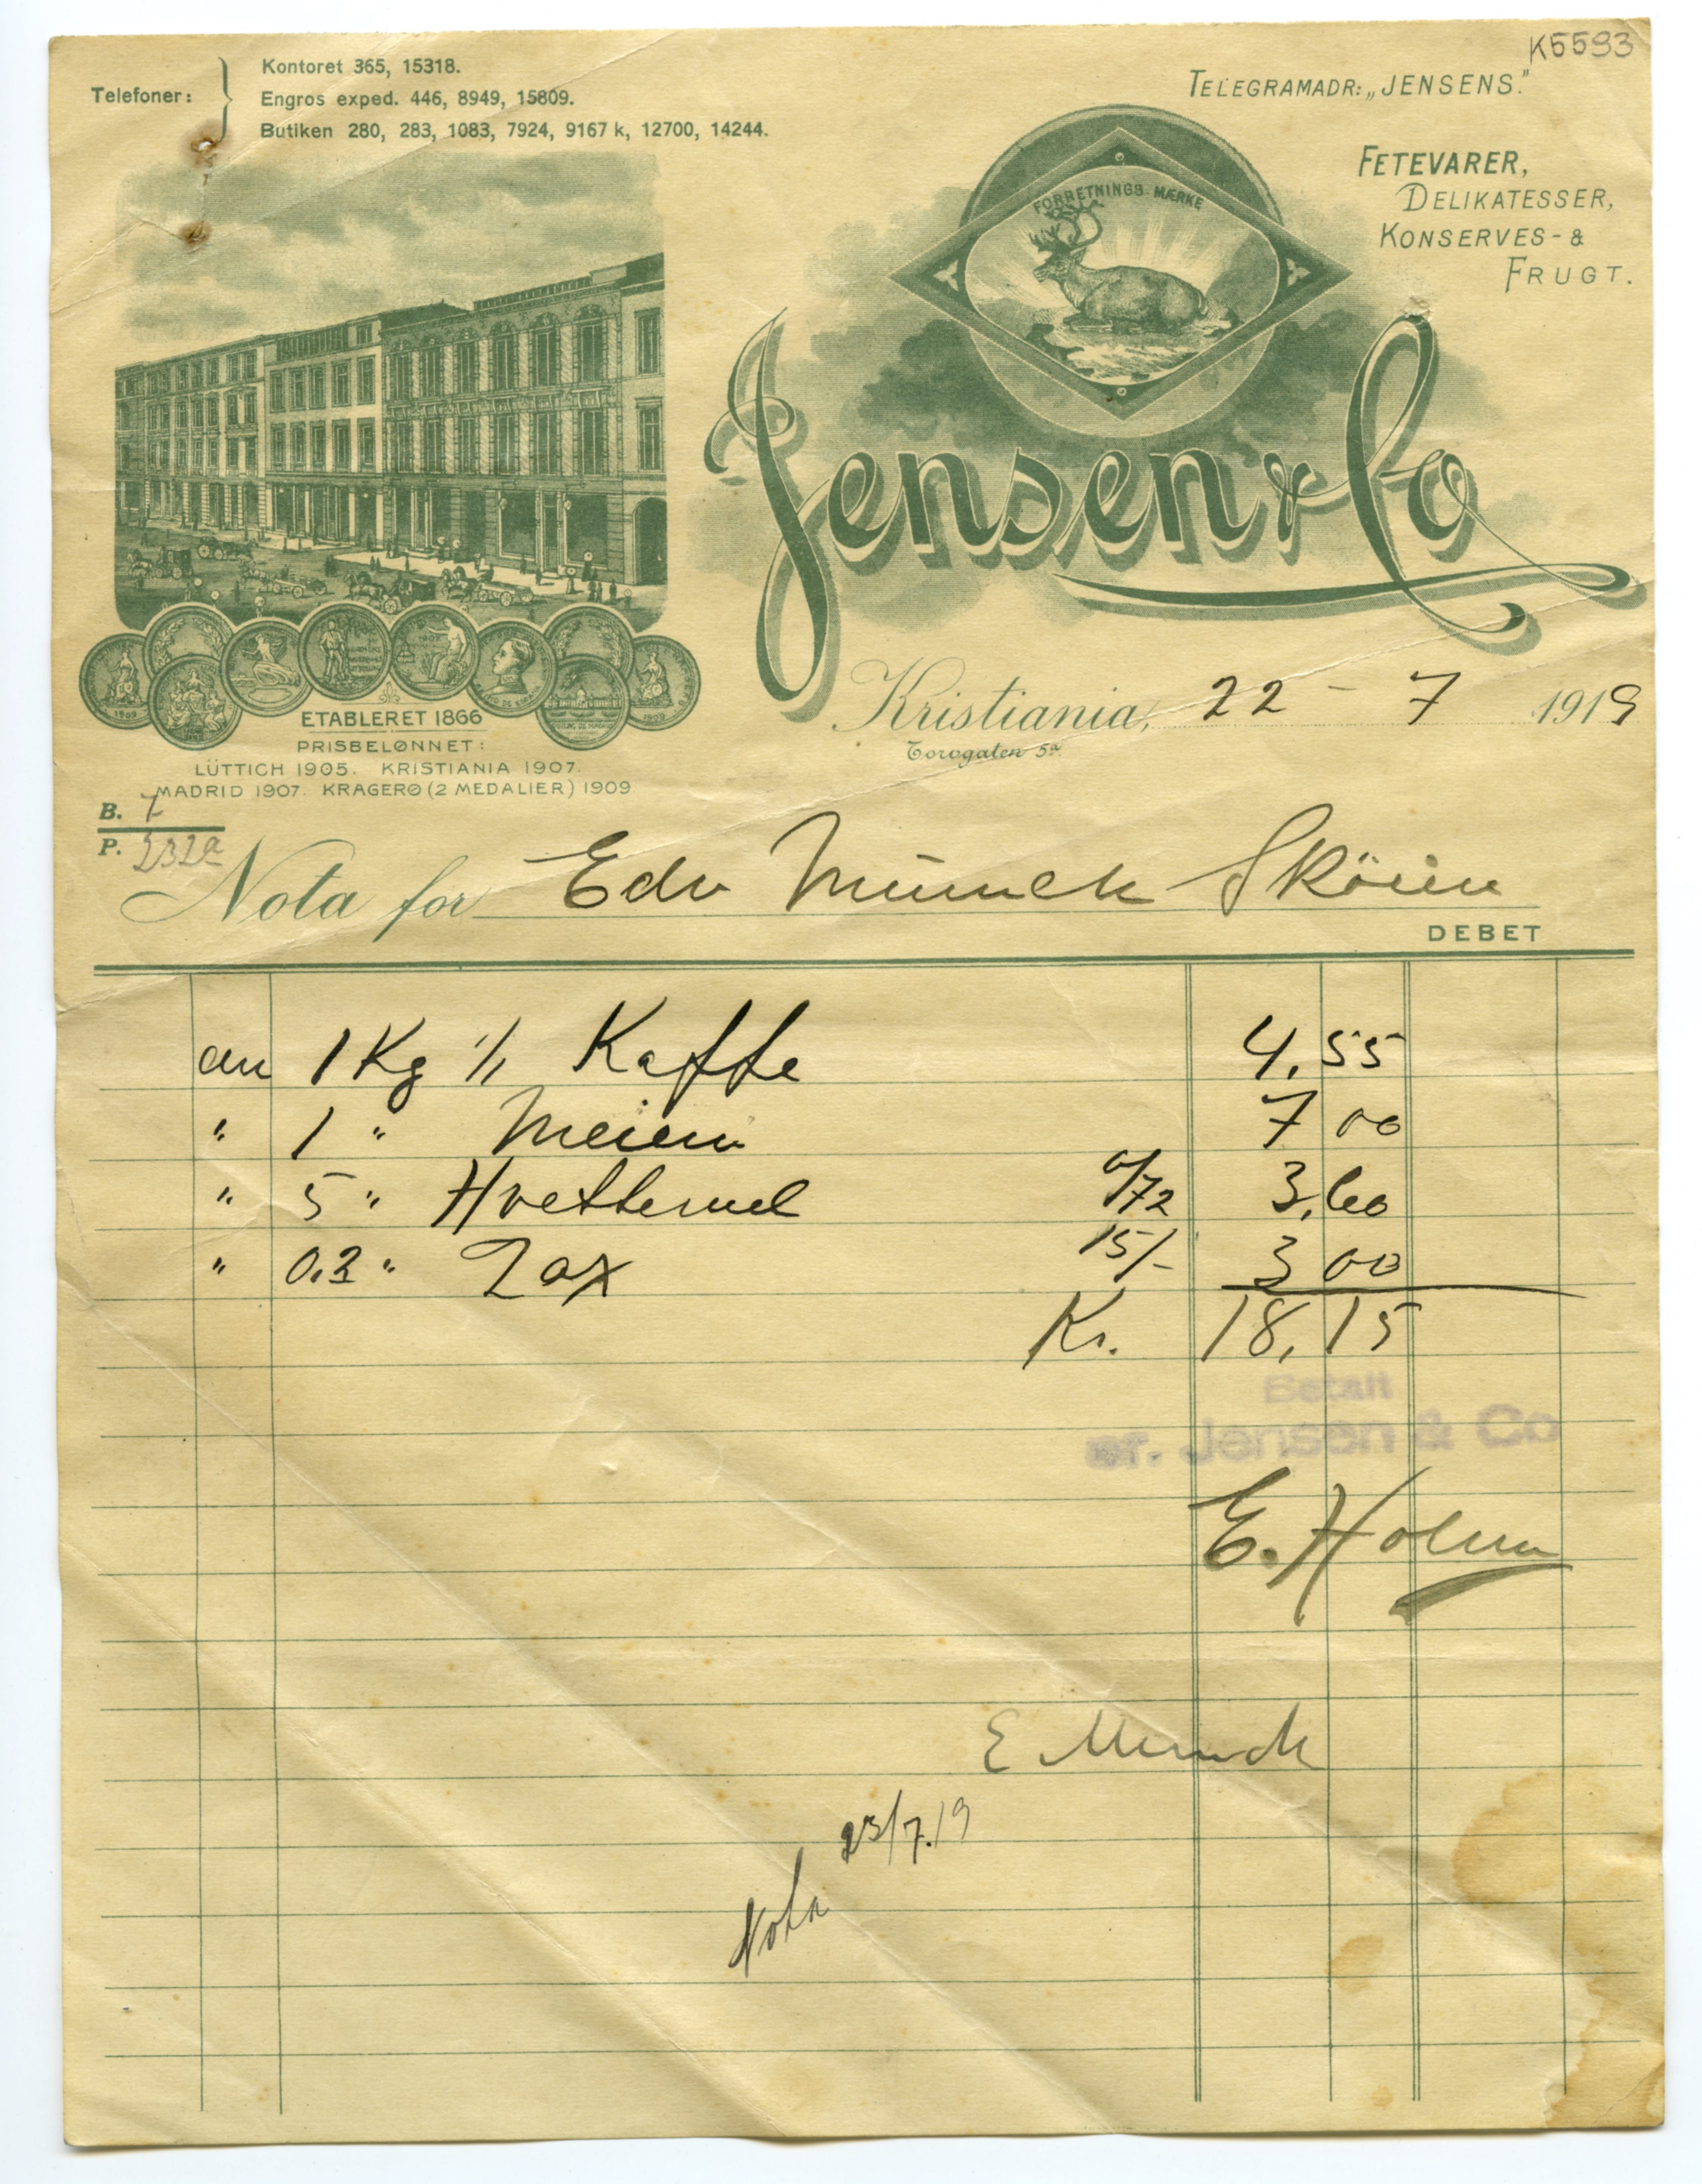 K5593
Telefoner:
Kontoret 365, 15318.
Engros exped. 446, 8949, 15809.
Butiken 280, 283, 1083, 7924, 9167 k, 12700, 14244.
TELEGRAMADR: „JENSENS."
FETEVARER,
DELIKATESSER,
KONSERVES- &
FRUGT.
FORRETNINGS MÆRKE
Jensen & Co
ETABLERET 1866
PRISBELØNNET:
LÜTTICH 1905. KRISTIANIA 1907.
MADRID 1907. KRAGERØ (2 MEDALIER) 1909
Kristiania, 22 - 7 1919
Torvgaten 5a
B. 7
P. 232a
Nota for Edv Münnch Sköien
DEBET
an 1 Kg 1/1 Kaffe 4,55
" 1 " Meieri 7 00
" 5 " Hvettemel a/72 3,60
" 0.2 " Lax 15/- 3 00
Kr. 18,15
Betalt
Jensen & Co
E. Holm
E Munch
23/7.19
Nota